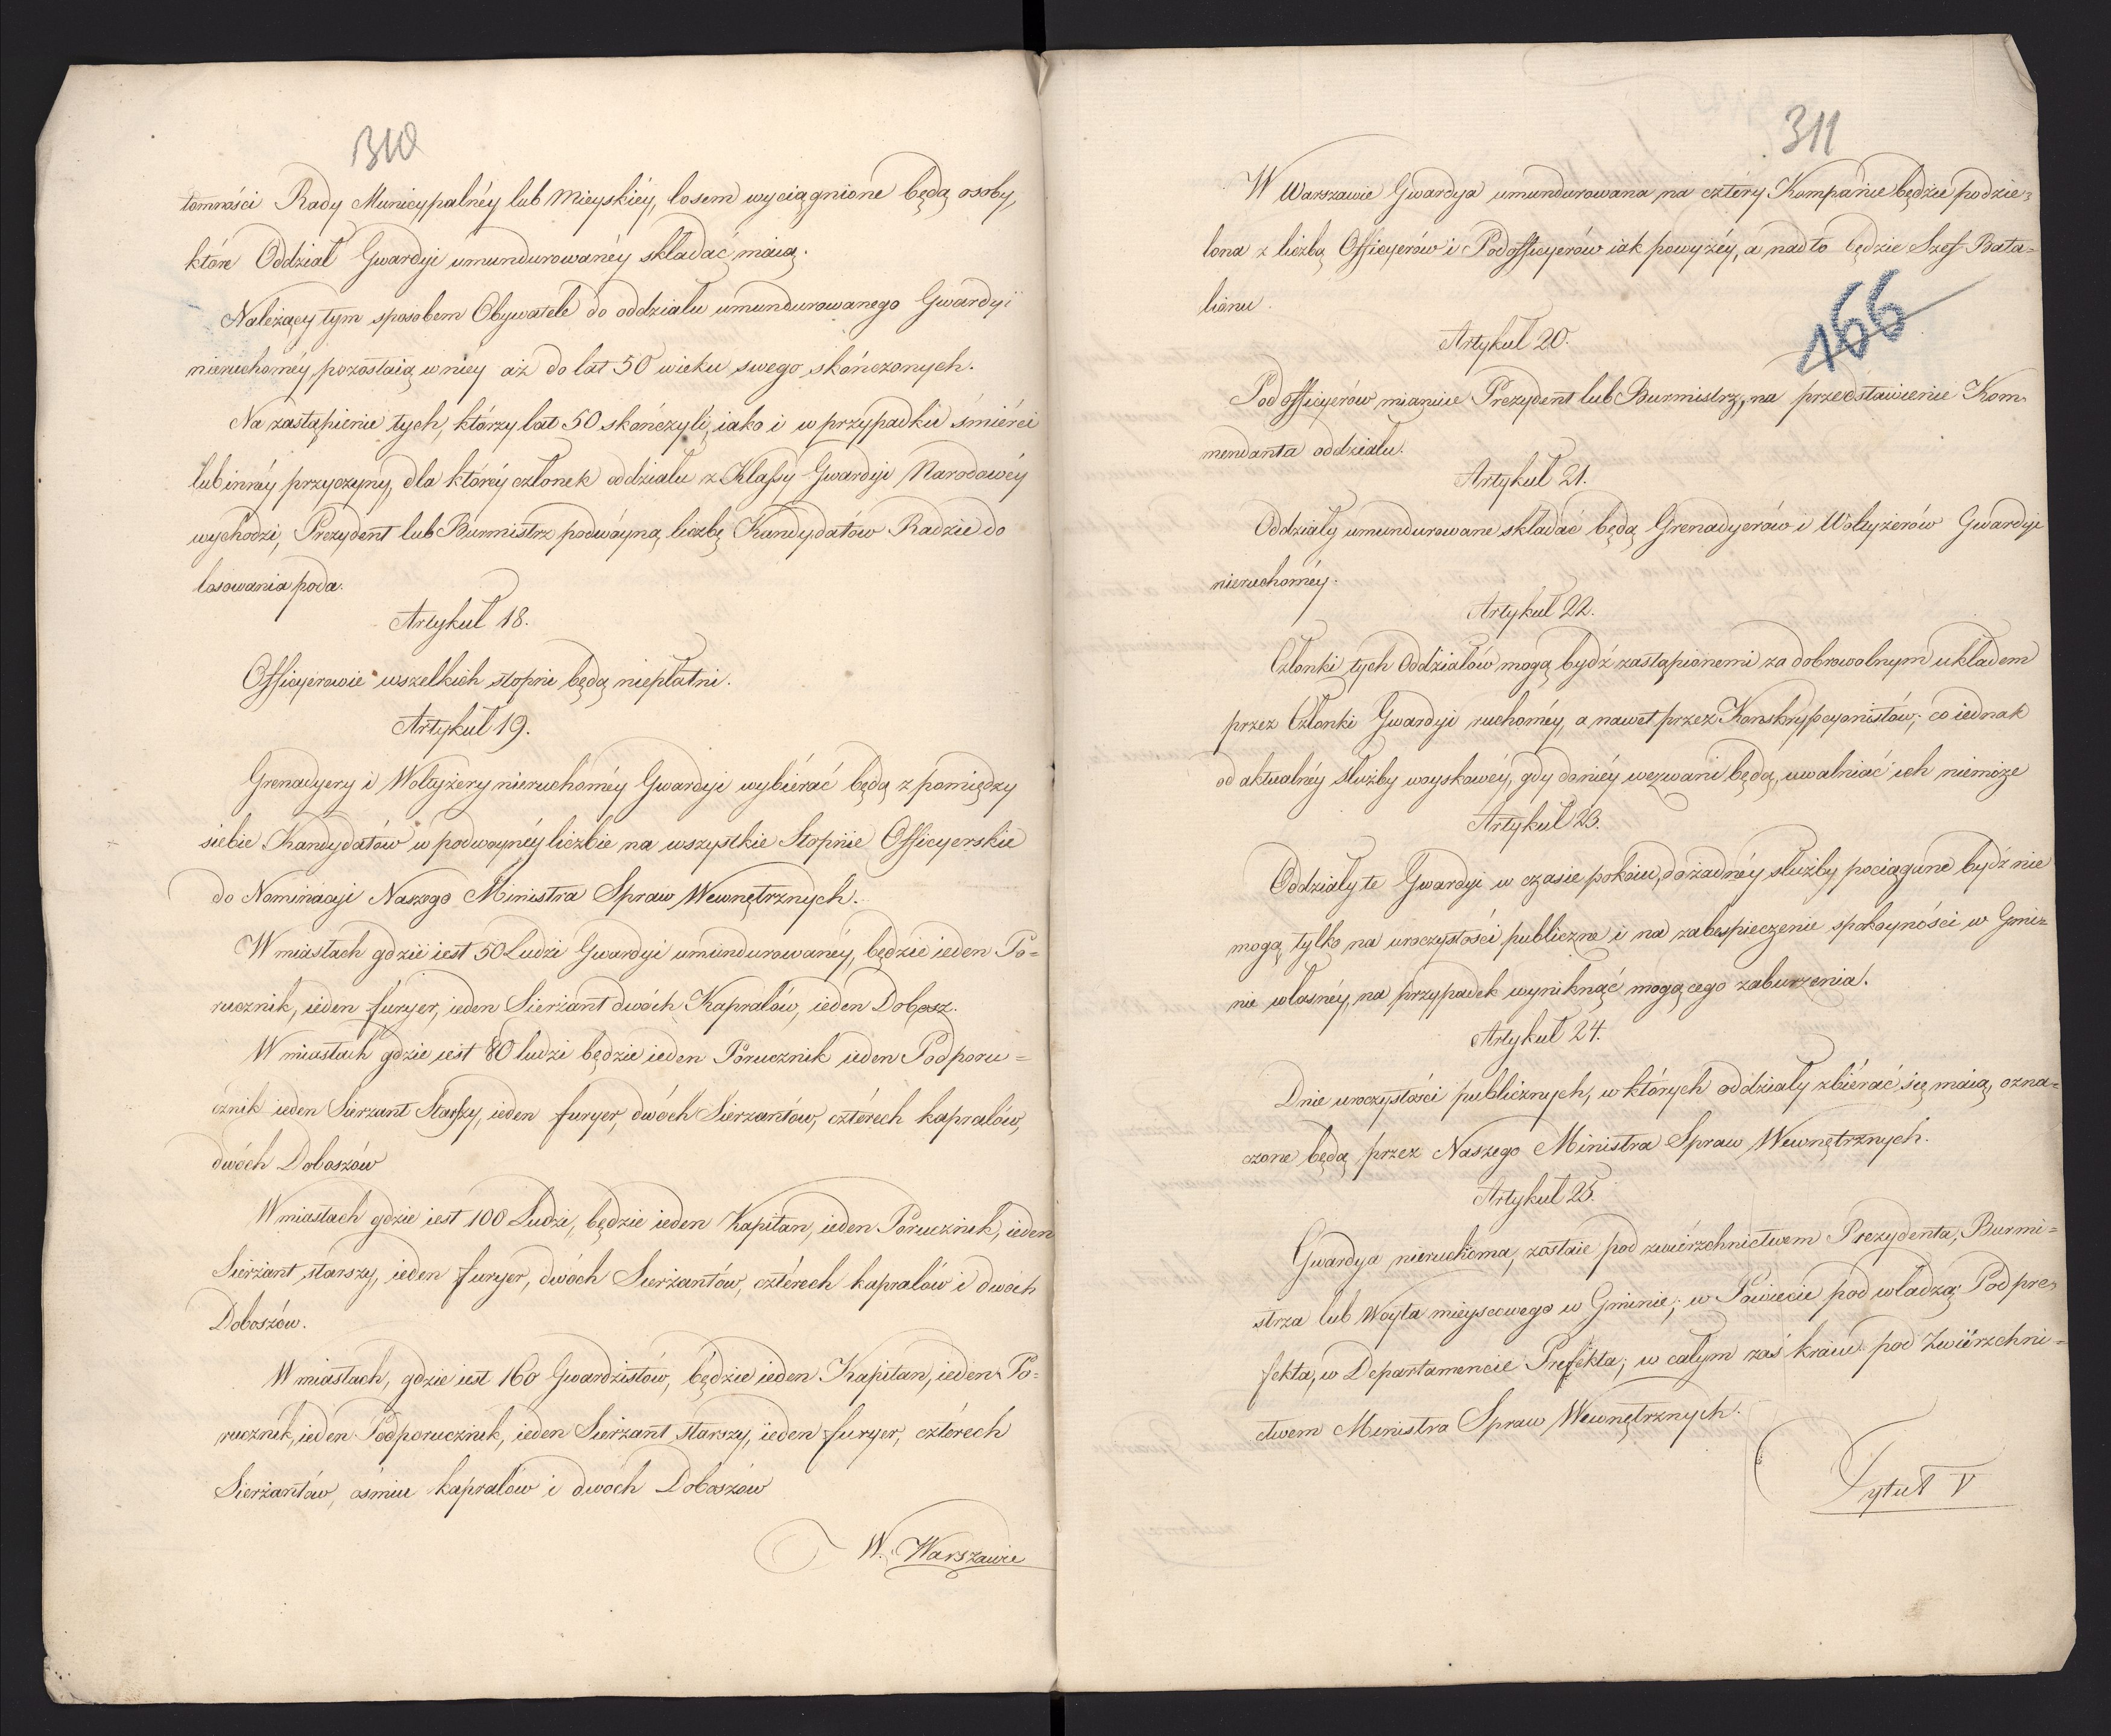 310
tomności Rady Municypalnéy lub Mieyskiéy, losem wyciągnione będą osoby,
które Oddział Gwardyi umundurowanéy składać maią.
Należący tym sposobem Obywatele do oddziału umundurowanego Gwardyi
nieruchoméy, pozostaią w niey aż do lat 50 wieku swego skończonych.
Na zastąpienie tych, którzy lat 50 skończyli, iako i w przypadku śmierci
lub innéy przyczyny, dla któréy członek oddziału z Klassy Gwardyi Narodowéy
wychodzi, Prezydent lub Burmistrz podwóyną liczbę Kandydatów Radzie do
losowania poda.
Artykuł 18.
Officyerowie wszelkich stopni będą niepłatni.
Artykuł 19.
Grenadyery i Woltyżery nieruchoméy Gwardyi wybiérać będą z pomiędzy
siebie Kandydatów w podwoynéy liczbie na wszystkie Stopnie Officyerskie
do Nominacyi Naszego Ministra Spraw Wewnętrznych.
W miastach gdzie iest 50 Ludzi Gwardyi umundurowanéy, będzie ieden Po=
rucznik, ieden furyer, ieden Sierżant dwóch Kaprałów, ieden Dobosz.
W miastach gdzie iest 80 ludzi będzie ieden Porucznik ieden Podporu=
cznik ieden Sierżant Starszy, ieden furyer, dwóch Sierżantów, cztérech kaprałów,
dwóch Doboszów
W miastach gdzie iest 100 Ludzi, będzie ieden Kapitan, ieden Porucznik, ieden
Sierżant starszy, ieden furyer, dwóch Sierżantów, cztérech kaprałów i dwoch
Doboszów.
W miastach, gdzie iest 160 Gwardzistów, będzie ieden Kapitan, ieden Po=
rucznik, ieden Podporucznik, ieden Sierżant starszy, ieden furyer, cztérech
Sierżantów, ośmiu kaprałów i dwóch Doboszów
W. Warszawie
311
W Warszawie Gwardya umundurowana na cztéry Kompanie będzie podzie=
lona z liczbą Officyerów i Podofficyerów iak powyżéy, a nad to będzie Szef Bata=
lionu.
166
Artykuł 20.
Podofficyerów mianuie Prezydent lub Burmistrz, na przedstawienie Kom=
mendanta oddziału.
Artykuł 21.
Oddziały umundurowane składać będą Grenadyerów i Woltyżerów Gwardyi
nieruchoméy.
Artykuł 22.
Członki tych Oddziałów mogą bydź zastąpionemi za dobrowolnym układem
przez Członki Gwardyi ruchoméy, a nawet przez Konskrypcyonistów; co iednak
od aktualnéy służby woyskowéy, gdy do niéy wezwani będą, uwalniać ich niemoże
Artykuł 23.
Oddziały te Gwardyi w czasie pokoiu, do żadnéy służby pociągane bydź nie
mogą, tylko na uroczystości publiczne i na zabespieczenie spokoyności w Gmi=
nie własnéy, na przypadek wyniknąć mogącego zaburzenia.
Artykuł 24.
Dnie uroczystości publicznych, w których oddziały zbiérać się maią, ozna=
czone będą przez Naszego Ministra Spraw Wewnętrznych.
Artykuł 25.
Gwardya nieruchoma, zostaie pod zwiérzchnictwem Prezydenta, Burmi=
strza lub Woyta mieyscowego w Gminie; w Powiecie pod władzą Podpre=
fekta, w Departamencie Prefekta; w całym zaś kraiu pod Zwiérzchni=
ctwem Ministra Spraw Wewnętrznych.
Tytuł V